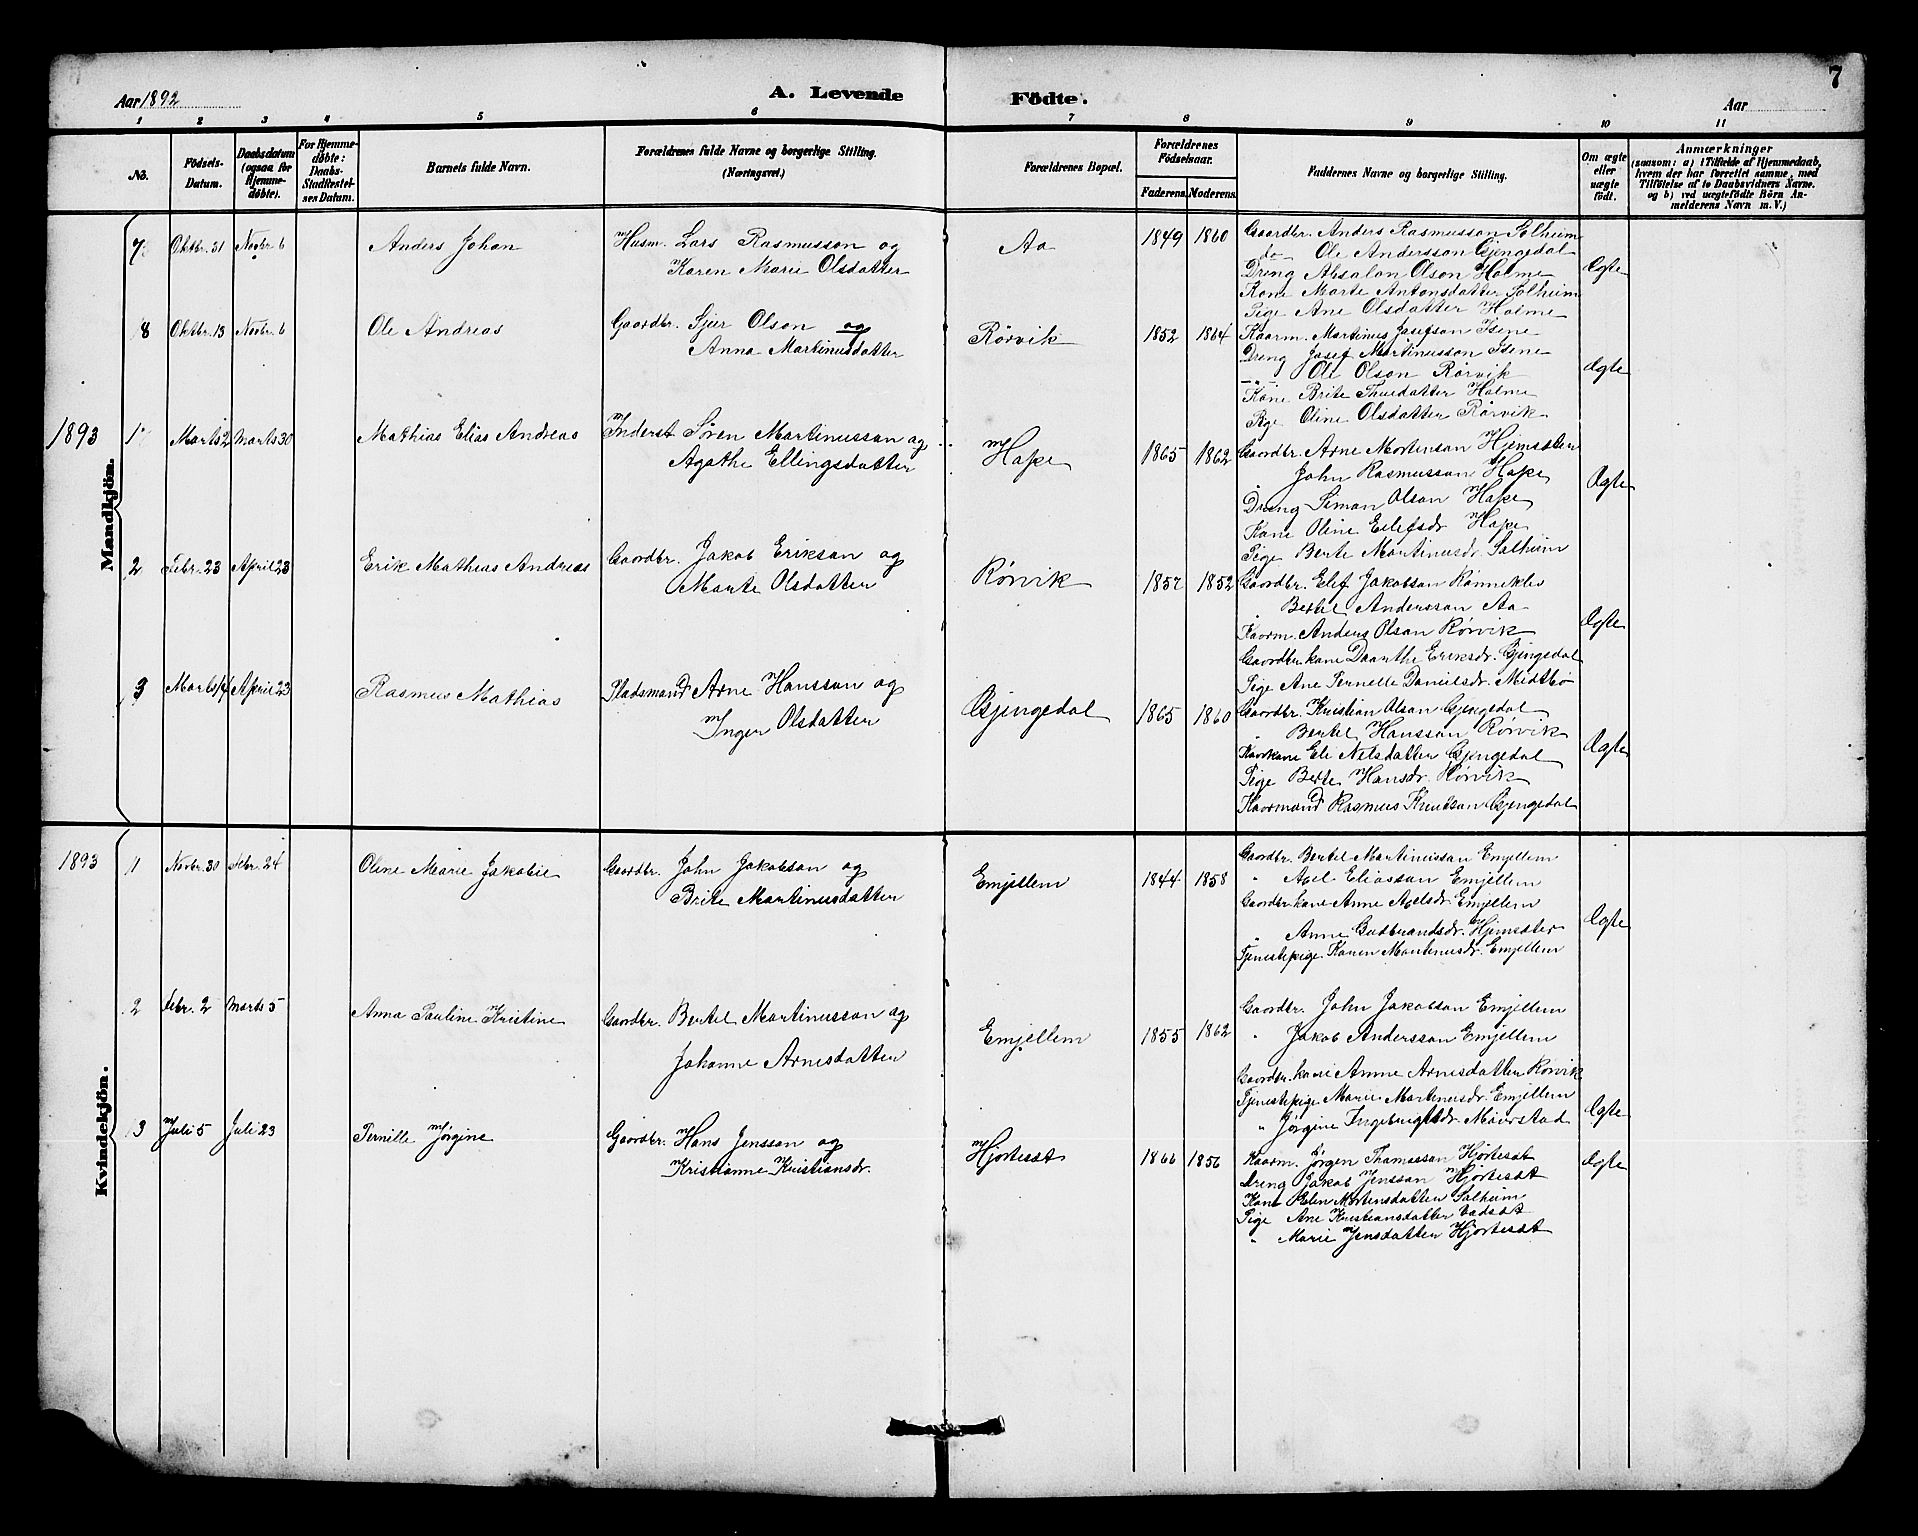 7
Aar 1892
A. Levende Födte.
Aar
1 2 3 4 5 6 7 8 9 10 11
No.
Födsels-Datum.
Daabsdatum (ogsaa for Hjemme-döbte).
For Hjemme-döbte: Daabs-Stadfæstel-ses Datum.
Barnets fulde Navn.
Forældrenes fulde Navne og borgerlige Stilling. (Næringsvei.)
Forældrenes Bopæl.
Forældrenes Födselsaar.
Faderens. Moderens.
Faddernes Navne og borgerlige Stilling.
Om ægte eller uægte født.
Anmærkninger
(saasom: a) i Tilfælde af Hjemmedaab,
hvem der har forrettet samme, med
Tilföielse af to Daabsvidners Navne.
og b) ved uægtefödte Börn An-
melderens Navn m. V.)
Mandkjön.
7 Oktbr. 31 Novbr. 6 Anders Johan Husm. Lars Rasmusson og
Karen Marie Olsdatter
Aa 1849 1860 Gaardbr. Anders Rasmusson Solheim
do Ole Andersson Gjengedal
Dreng Absalon Olson Holme
Kone Marte Antonsdatter Solheim
Pige Ane Olsdatter Holme
Ægte
8 Oktbr. 13 Novbr. 6 Ole Andreas Gaardbr. Sjur Olson og
Anna Martinusdatter
Rørvik 1852 1864 Kaarm. Martinus Josefson Isene
Dreng Josef Martinusson Isene
-"- Ole Olson Rørvik
Kone Brite Thuedatter Holme
Pige Oline Olsdatter Rørvik
Ægte
1893 1 Marts 2 Marts 30 Mathias Elias Andreas Inderst Søren Martinusson og
Agathe Ellingsdatter
Hope 1865 1862 Gaardbr. Arne Mortenson Hjemsæter
" John Rasmusson Hope
Dreng Simon Olson Hope
Kone Oline Eilefsdr. Hope
Pige Berte Martinusdr. Solheim
Ægte
2 Febr. 23 April 23 Erik Mathias Andreas Gaardbr. Jakob Erikson og
Marte Olsdatter
Rørvik 1857 1852 Gaardbr. Elef Jakobson Rønneklev
" Bertel Andersson Aa
Kaarm. Anders Olson Rørvik
Gaardbr. kone Daarthe Eriksdr. Gjengedal
Pige Ane Pernelle Danielsdr. Midtbø
Ægte
3 Marts April 23 Rasmus Mathias Pladsmand Arne Hansson og
Inger Olsdatter
Gjengedal 1865 1860 Gaardbr. Kristian Olson Gjengedal
" Bertel Hansson Rørvik
Kaarkone Eli Nelsdatter Gjengedal
Pige Berte Hansdr. Rørvik
Kaarmand Rasmus Knudson Gjengedal
Ægte
Kvindekjön.
1893 1 Novbr. 30 Febr. 24 Oline Marie Jakobie Gaardbr. John Jakobson og
Brite Martinusdatter
Emjellem 1844 1858 Gaardbr. Bertel Martinusson Emjellem
" Axel Eliasson Emjellem
Gaardbr. kone Anne Axelsdr. Emjellem
" Anne Gudbrandsdr. Hjemsæter
Tjenestepige Karen Martinusdr. Emjellem
Ægte
2 Febr. 2 Marts 5 Anna Pauline Kristine Gaardbr. Bertel Martinusson og
Johanne Arnesdatter
Emjellem 1855 1862 Gaardbr. John Jakobson Emjellem
" Jakob Andersson Emjellem
Gaardbr. kone Anne Arnesdatter Rørvik
Tjenestepige Marie Martinusdr. Emjellem
" Jørgine Ingebrigtsdr. Maurstad
Ægte
3 Juli 5 Juli 23 Pernille Jørgine Gaardbr. Hans Jensson og
Kristianne Kristiansdr.
Hjortesæt 1866 1856 Kaarm. Jørgen Thomasson Hjortesæt
Dreng Jakob Jensson Hjortesæt
Kone Elen Mortensdatter Solheim
Pige Ane Kristiansdatter
" Marie Jensdatter Hjortesæt
Ægte